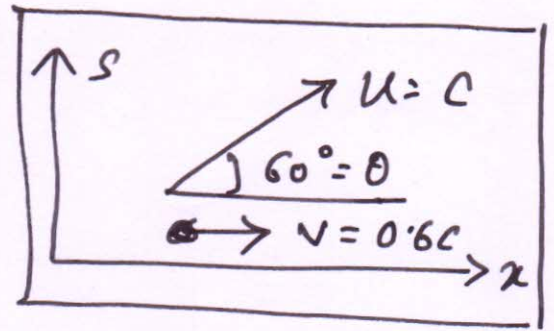 S
U = C
60° = θ
V = 0.6C
x